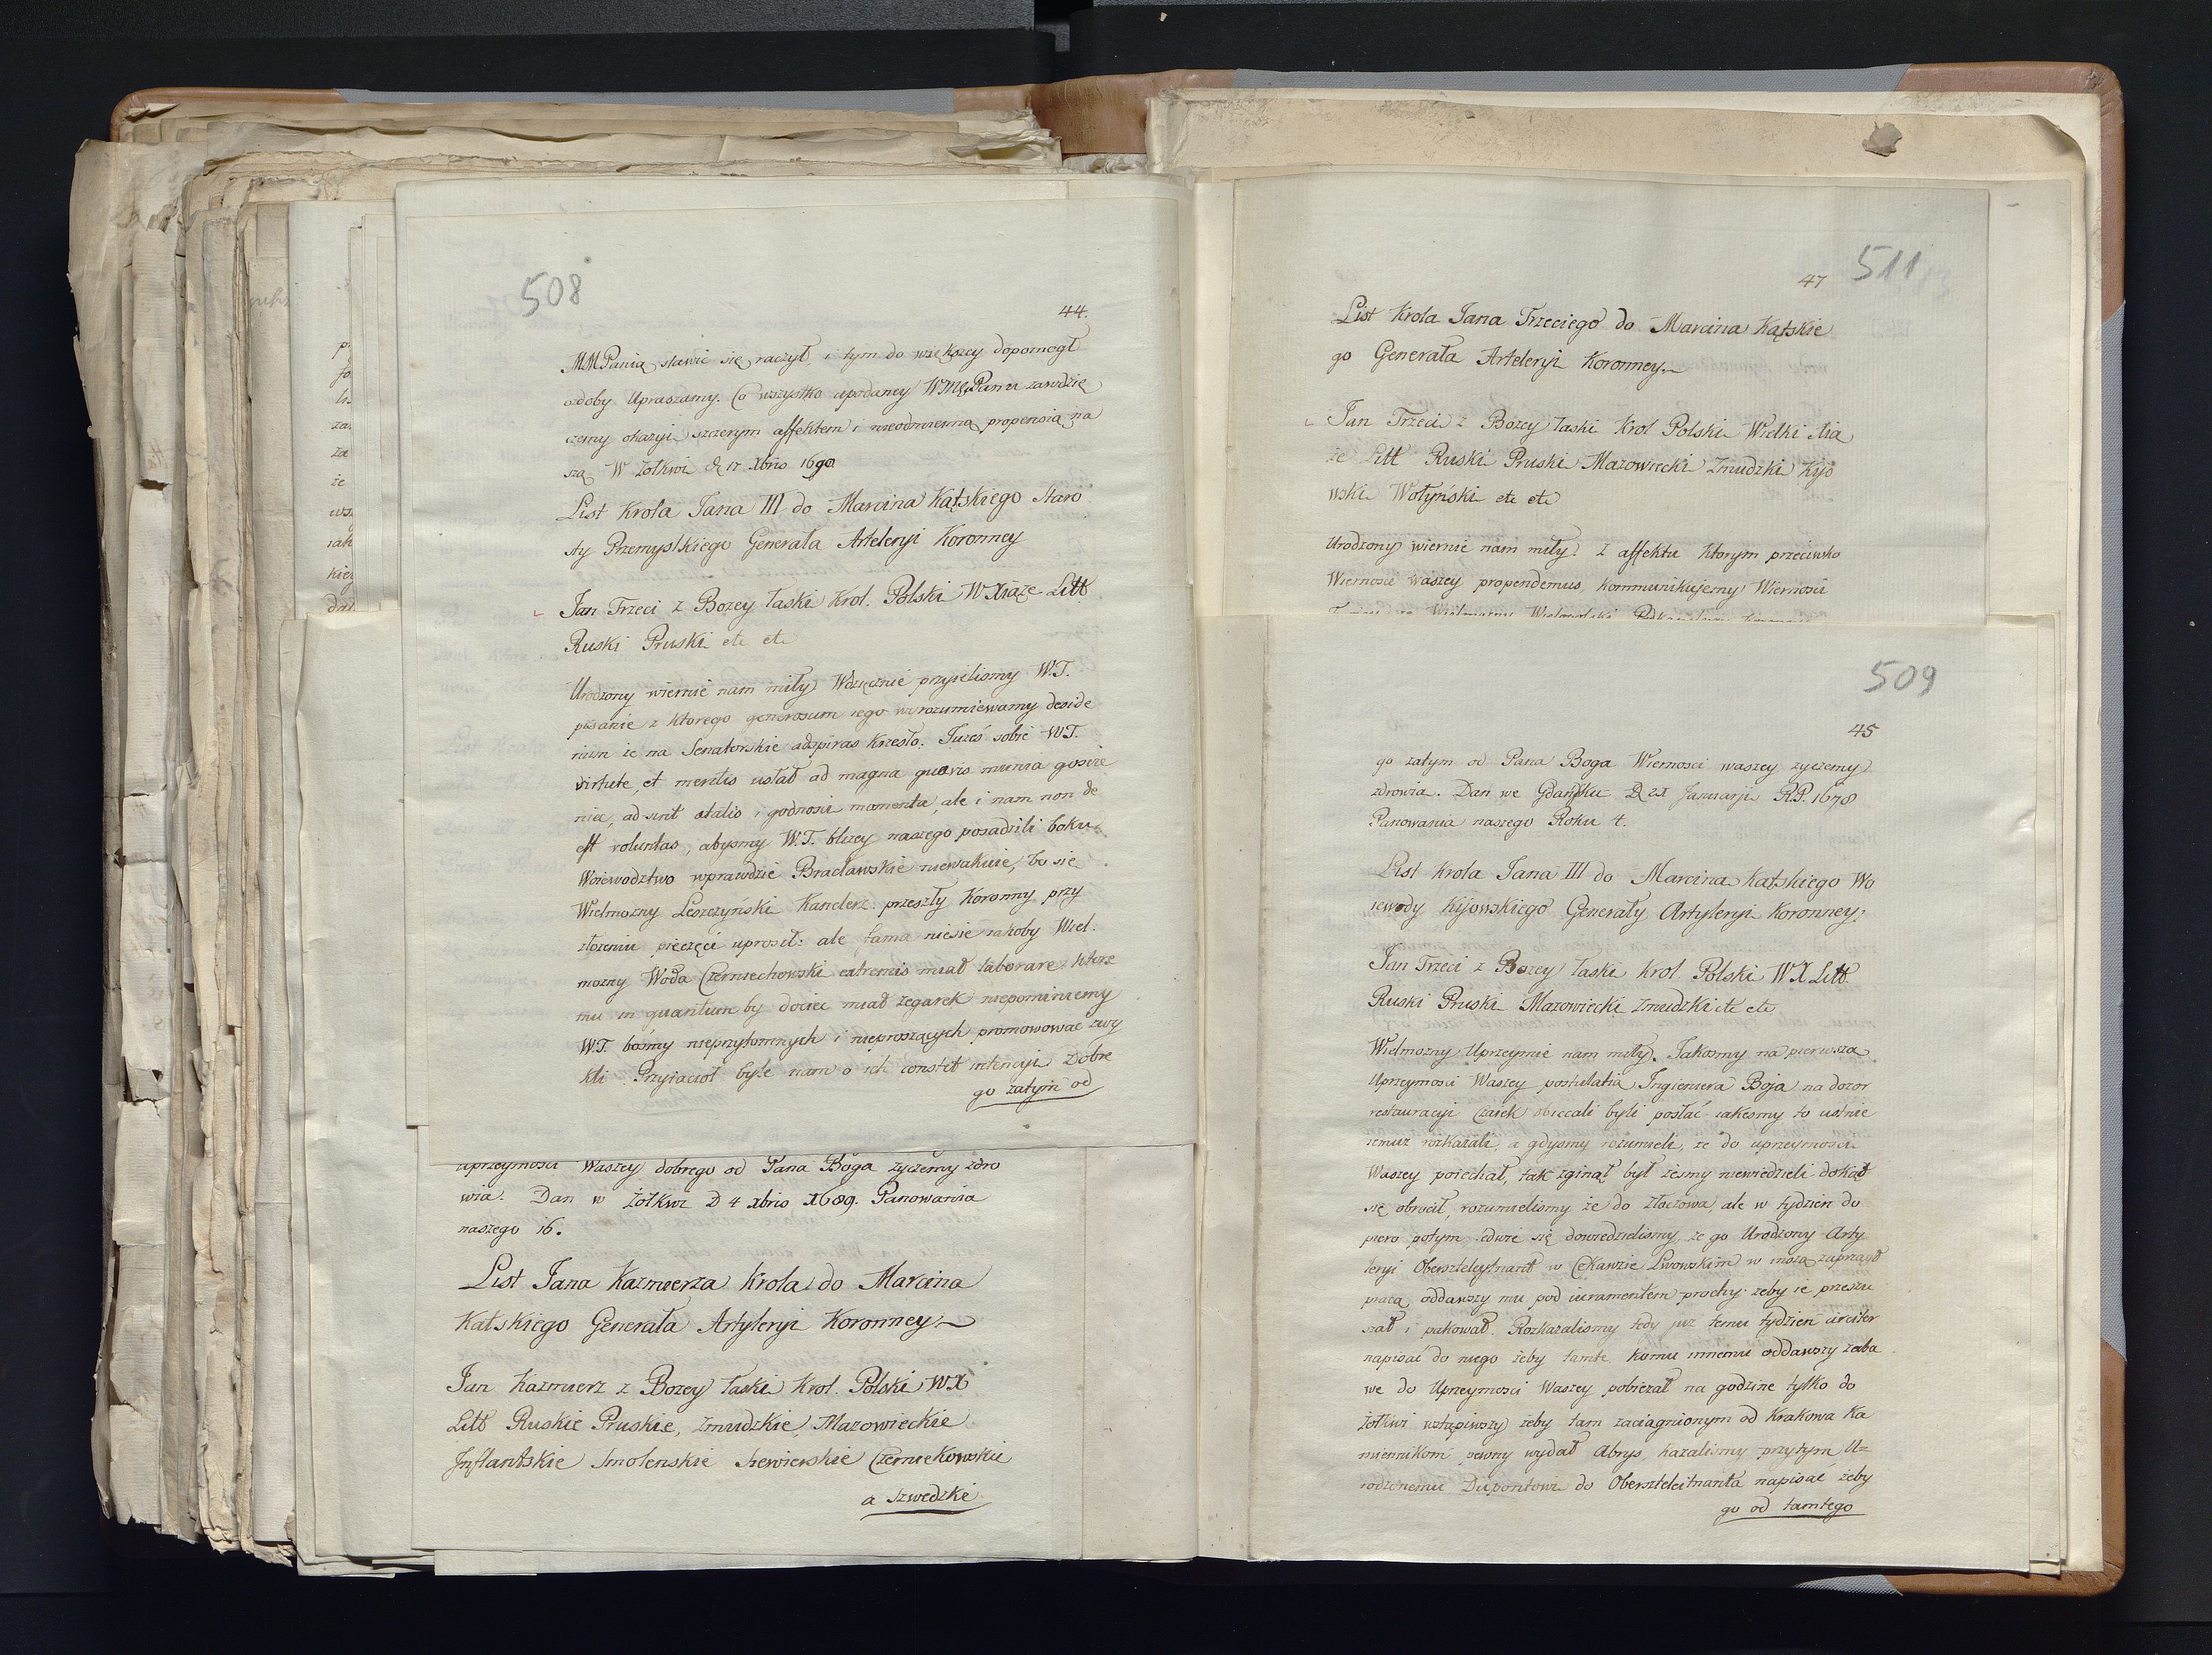 508
44.
MMPanią stawić się raczył, i tym do większey dopomogł
ozdoby Upraszamy. Co wszystko apodaney WMęPanu zawdzię
czemy okazyi szczerym affektem i nieodmienną propensią na
szą W Zołkwi D 17 Xbris 1690
List Krola Jana III do Marcina Kątskiego Staro
sty Przemyslkiego Generała Arteleryi Koronney
Jan Trzeci z Bozey łaski Krol. Polski W Xiąze Litt
Ruski Pruski etc etc
Urodzony wiernie nam miły) Wdzięcznie przyielismy W.T.
pisanie z ktorego generosum iego wyrozumiewamy deside
rium ze na Senatorskie adspiras Krzesło. Juześ sobie W.T.
virtute, et meritis usłał ad magna quævis munia goscie
niec, adsunt ætatis i godnosci momenta, ale i nam non de
est voluntas, abysmy W.T. blizey naszego posadzili boku.
Woiewodztwo wprawdzie Bracławskie niewakuie, bo się
Wielmozny Leszczyński Kanclerz przeszły Koronny przy
złozeniu pieczęci uprosił: ale fama niesie iakoby Wiel.
mozny Woda Czerniechowski extremis miał laborare: ktore
mu in quantum by dociec miał zegarek niepominiemy
W.T. bosmy nieprzytomnych i nieproszących promowować zwy
kli Przyiacioł byle nam o ich constet intencyi Dobre
go zatym od
uprzeymosci Waszey dobrego od Pana Boga zyczemy zdro
wia. Dan w Żołkwi D 4 Xbris 1689. Panowania
naszego 16.
List Jana Kazmierza Krola do Marcina
Kątskiego Generała Artyleryi Koronney.
Jan Kazmierz z Bozey łaski Krol. Polski WX
Litt Ruskie Pruskie, Zmudzkie, Mazowieckie
Inflantskie Smolenskie Siewierskie Czerniekowskie
a Szwedzki
47
511
List Krola Jana Trzeciego do Marcina Kątskie
go Generała Arteleryi Koronney.
Jan Trzeci z Bozey łaski Krol Polski Wielki Xią
że Litt Ruski Pruski Mazowiecki Zmudzki Kijo
wski Wołyński etc etc
Urodzony wiernie nam miły! Z affektu ktorym przeciwko
Wiernosci waszey propendemus, kommunikujemy Wiernosci
509
45
go zatym od Pana Boga Wiernosci waszey zyczemy
zdrowia. Dan we Gdańsku D 21 Januarji R.P. 1678
Panowania naszego Roku 4.
List Krola Jana III do Marcina Kątskiego Wo
iewody Kijowskiego Generały Artyleryi Koronney:
Jan Trzeci z Bozey łaski Krol Polski WX Litt.
Ruski Pruski Mazowiecki Zmudzki etc etc
Wielmozny Uprzeymie nam miły. Jakosmy na pierwszą
Uprzeymosci Waszey postulatią Ingieniera Boja na dozor
restauracyi Czaiek obiecali byli posłać iakesmy to ustnie
iemuz rozkazali, a gdysmy rozumieli, ze do uprzeymosci
Waszey poiechał, tak zginął był żesmy niewiedzieli dokąd
się obrocił, rozumielismy że do Złoczowa, ale w tydzien do
piero potym, ledwie się dowiedzielismy, że go Urodzony Arty
leryi Oberszteleytnant w Cekawzie Lwowskim w inszą zaprzągł
pracą oddawszy mu pod iuramentem prochy żeby ie przesu
szał i pakował. Rozkazalismy tedy juz temu tydzien arciter
napisać do niego żeby tamte komu innemu oddawszy zaba
we do Uprzeymosci Waszey pobieżał na godzine tylko do
Żołkwi wstąpiwszy żeby tam zaciągnionym od Krakowa Ka
miennikom pewny wydał Abrys, kazalismy przytym U-
rodzonemu Dupontowi do Oberszteleitnanta napisać żeby
go od tamtego